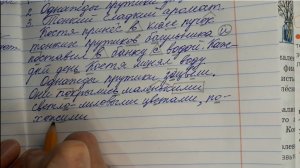 2. Однажды прутики
3. Тонкий сладкий аромат.
Костя принёс в класс пучок
тонких прутиков багульника
поставил в банку с водой. Каж-
дый день Костя менял воду.
Однажды прутики зацвели.
Они покрылись маленькими
светло-лиловыми цветами, по-
хожими